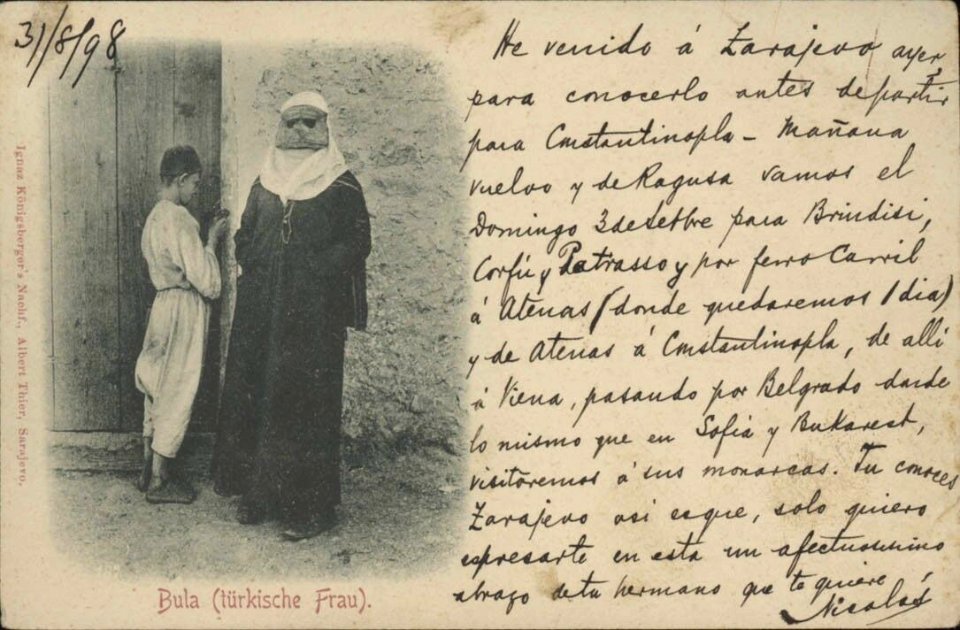 31/8/98
He venido á Zarajevo ayer,
para conocerlo antes de partir
para Constantinopla - Mañana
vuelvo y de Ragusa vamos el
Domingo 3 de Setbre para Brindisi,
Corfú y Patrasso y por ferro Carril
á Atenas (donde quedaremos 1 dia)
y de Atenas á Constantinopla, de allí
á Viena, pasando por Belgrado donde
lo mismo que en Sofia y Bukarest,
visitaremos á sus monarcas. Tu conoces
Zarajevo asi es que, solo quiero
espresarte en esta un afectuosisimo
abrazo de tu hermano que te quiere,
Nicolas
Ignaz Königsberger's Nachf., Albert Thier, Sarajevo.
Bula (türkische Frau).